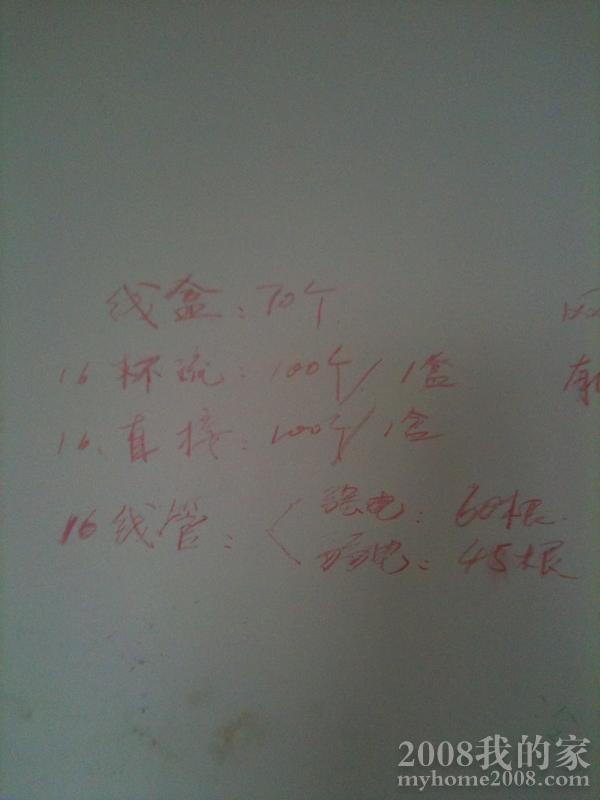 线盒：70个
16 杯疏：100个/1盒
16.直接：100个/1盒
16线管：
强电：60根
弱电：45根
2008我的家
myhome2008.com